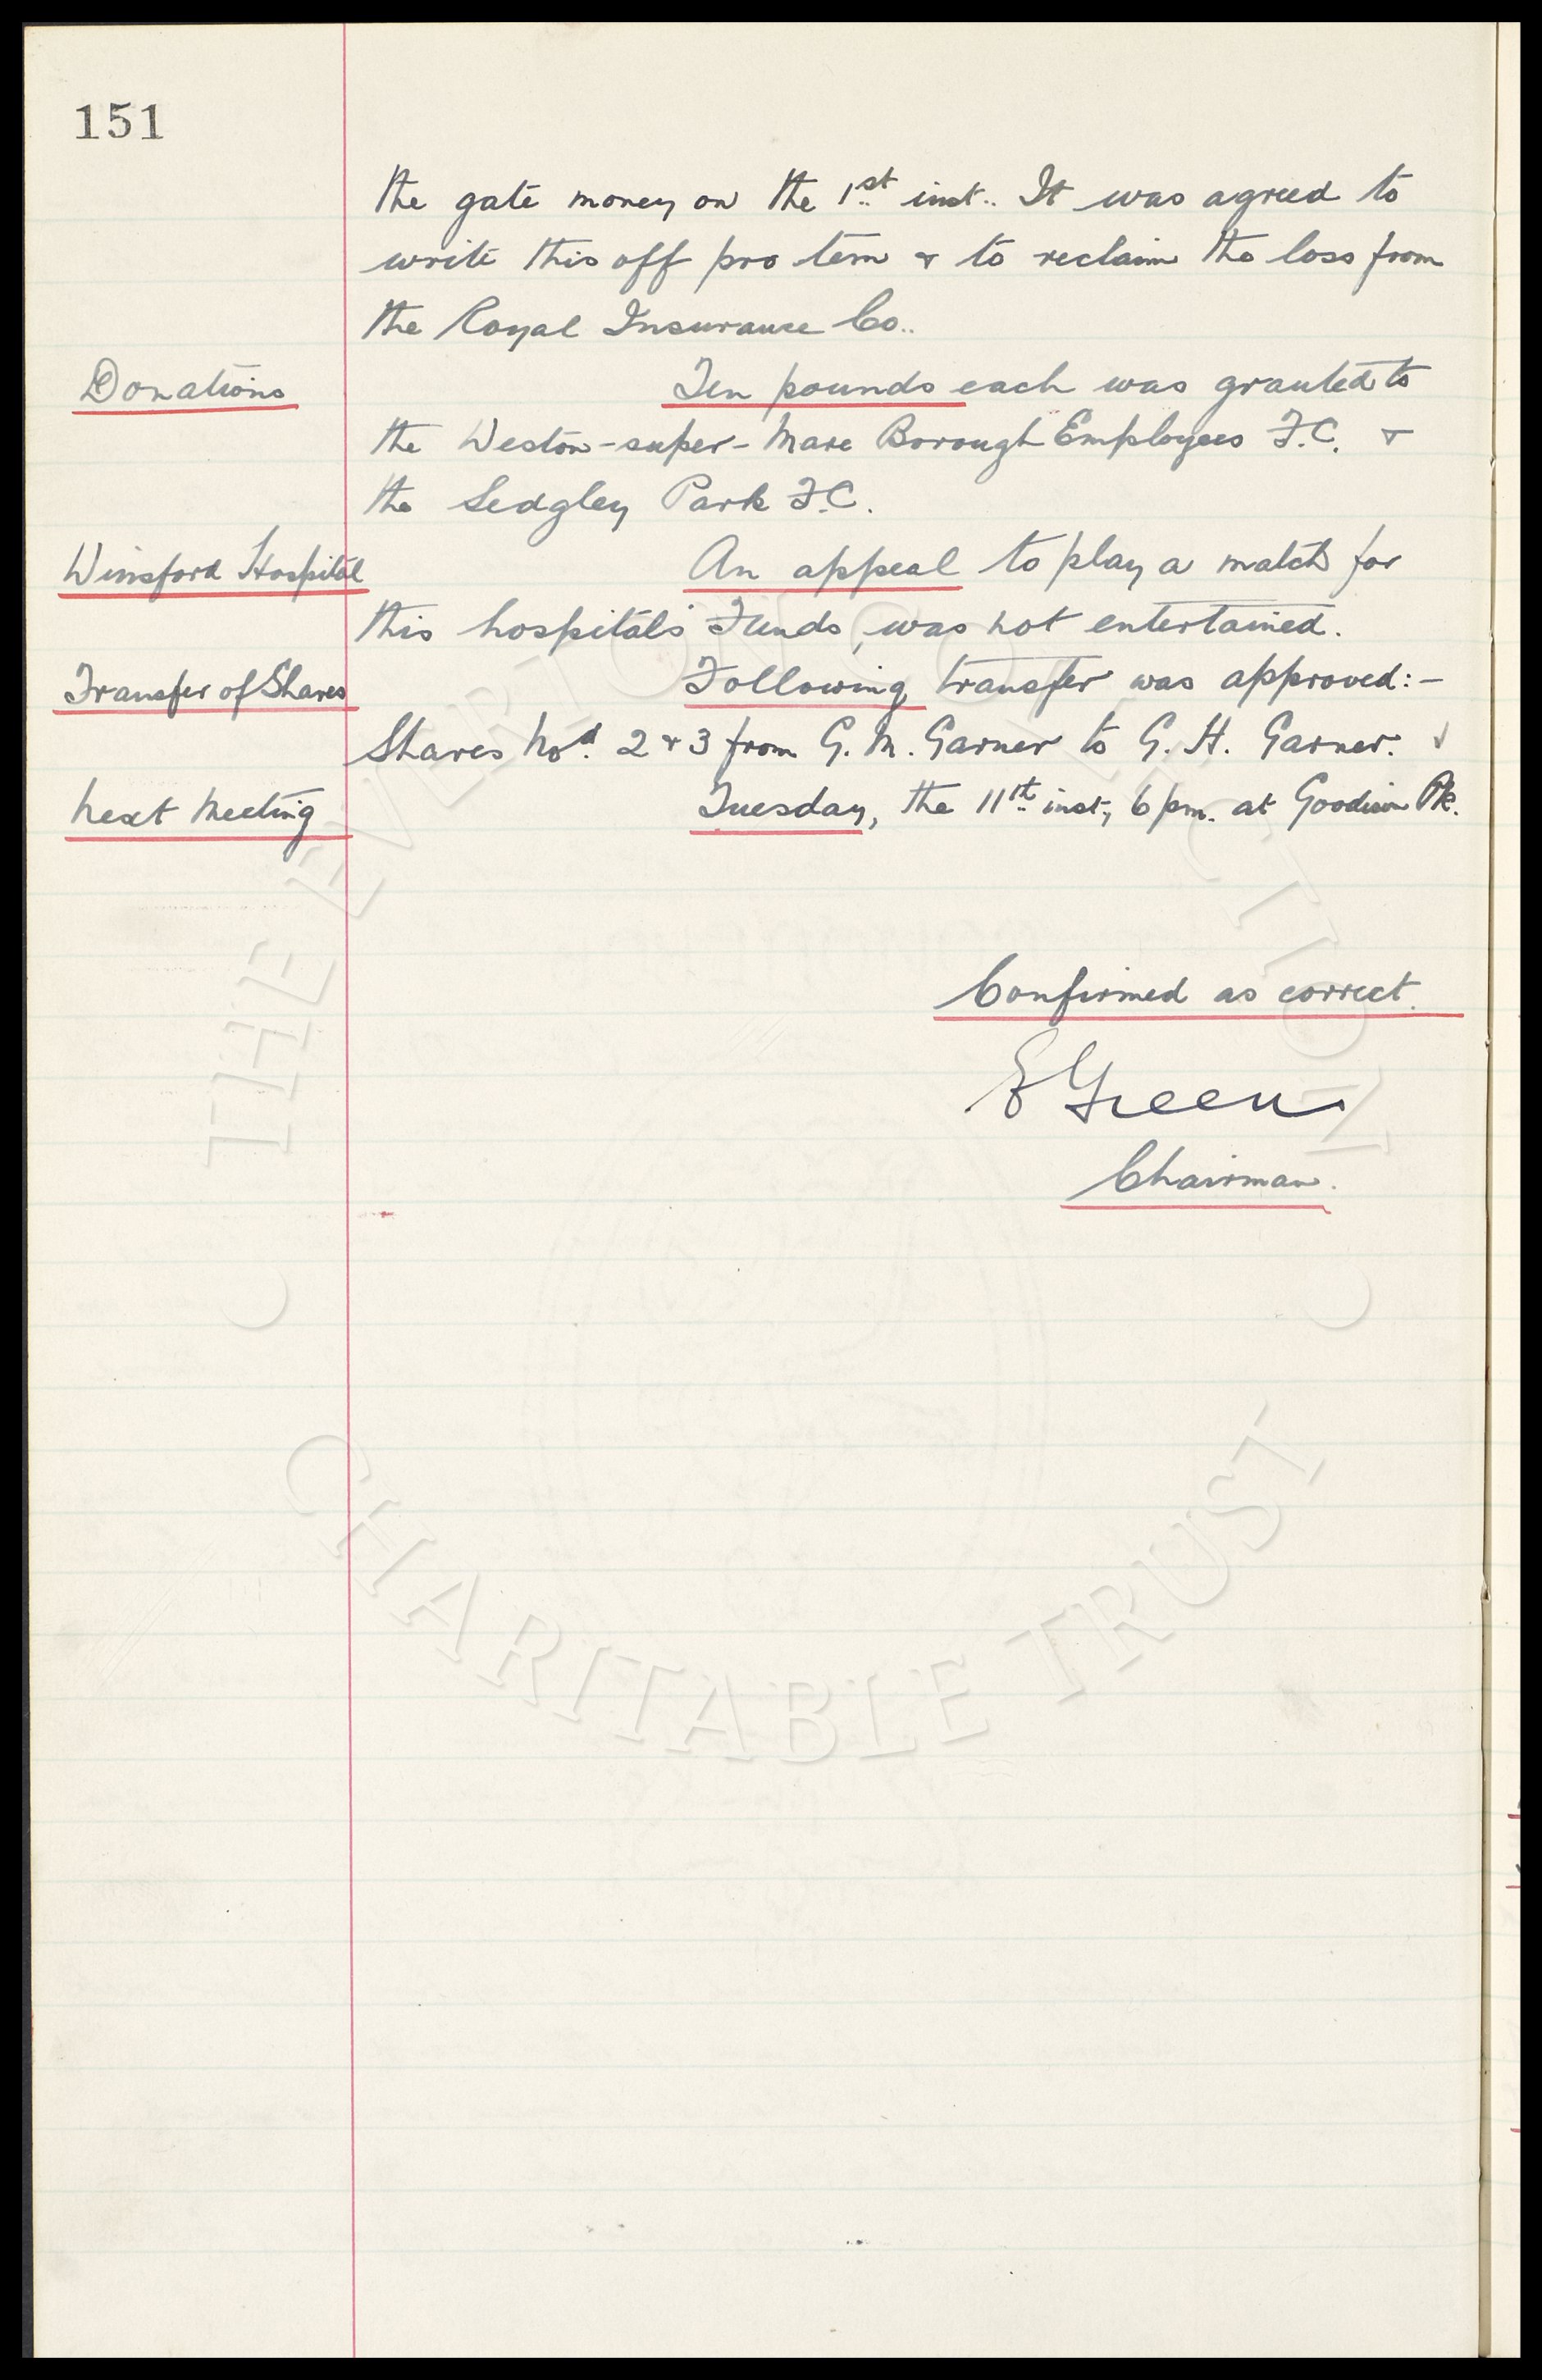 151
the gate money on the 1st inst.. It was agreed to
write this off pro tem & to reclaim the loss from
the Royal Insurance Co..
Donations Ten pounds each was granted to
the Weston-super-Mare Borough Employees F.C. &
the Sedgley Park F.C.
Winsford Hospital An appeal to play a match for
this hospital's Funds, was not entertained.
Transfer of Shares Following transfer was approved:-
Shares Nos. 2 & 3 from G. M. Garner to G. H. Garner. ✓
Next Meeting Tuesday, the 11th inst, 6 pm. at Goodison Pk.
Confirmed as correct.
E Green
Chairman.
THE EVERTON COLLECTION
CHARITABLE TRUST